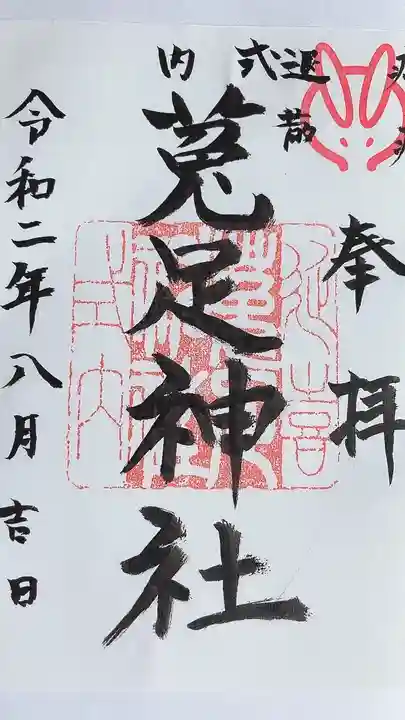 奉拝
退散
式内
菟足神社
令和二年八月吉日